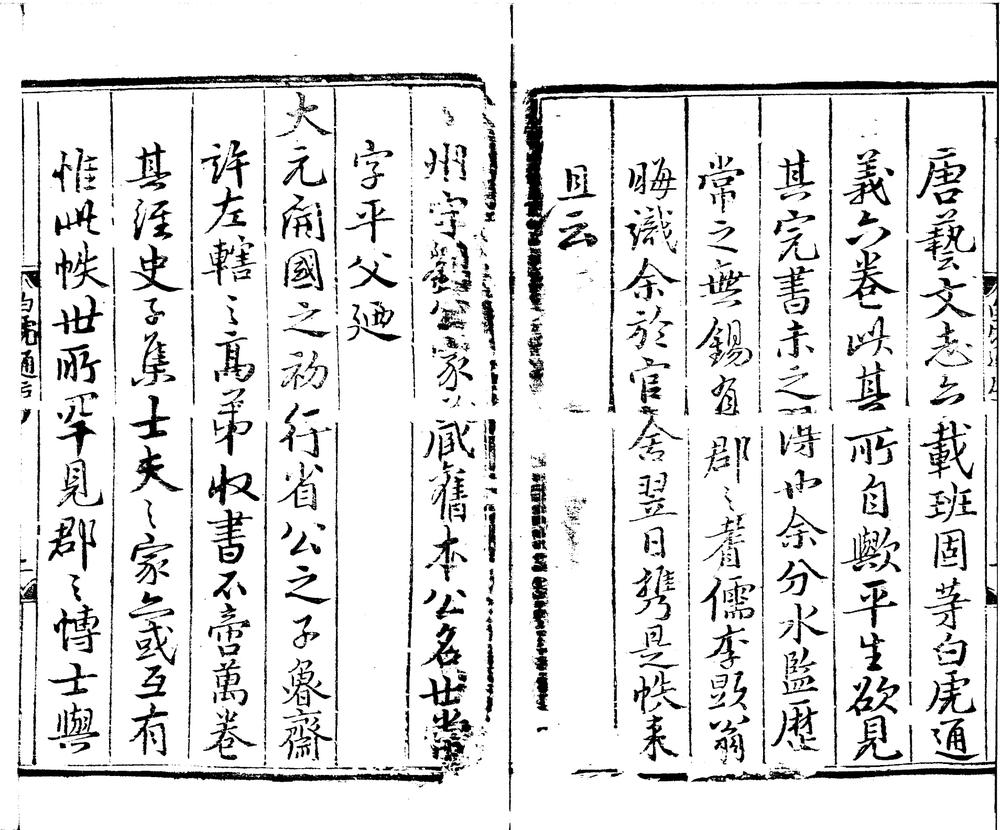 唐藝文志亦載班固等白虎通
義六卷此其所自歟平生欲見
其完書未之得也余分水監歷
常之無錫有郡之耆儒李顯翁
晦識余於官舍翌日攜是帙來
且云
州守劉公家藏舊本公名世常
字平父廼
大元開國之初行省公之子魯齋
許左轄之高弟收書不啻萬卷
其經史子集士夫之家亦或互有
惟此帙世所罕見郡之博士與
白虎通序